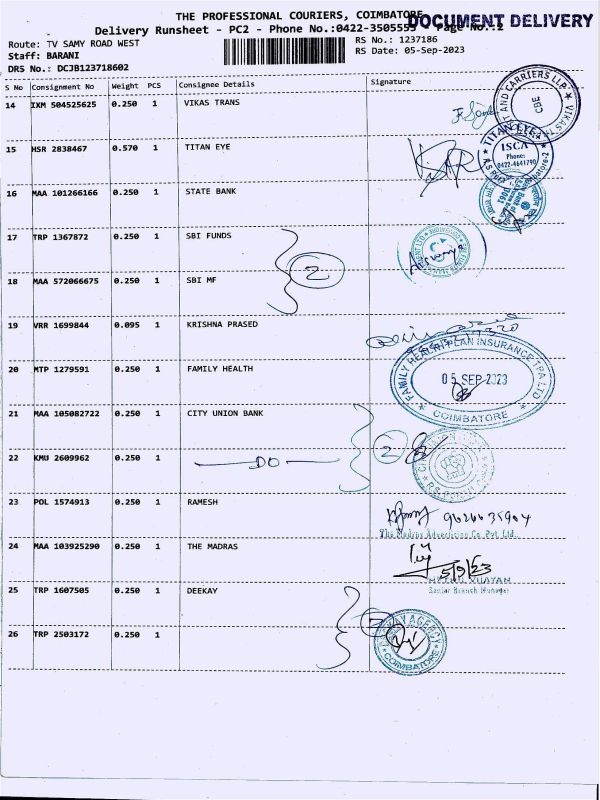 THE PROFESSIONAL COURIERS, COIMBATORE
DOCUMENT DELIVERY
Delivery Runsheet - PC2 - Phone No.:0422-3505555 Page No.:2
Route: TV SAMY ROAD WEST
RS No.: 1237186
Staff: BARANI
RS Date: 05-Sep-2023
DRS No.: DCJB123718602
S No Consignment No Weight PCS Consignee Details Signature
14 IXM 504525625 0.250 1 VIKAS TRANS
15 HSR 2838467 0.570 1 TITAN EYE
TITAN EYE
ISCA
Phone:
0422-4641790
16 MAA 101266166 0.250 1 STATE BANK
17 TRP 1367872 0.250 1 SBI FUNDS
2
18 MAA 572066675 0.250 1 SBI MF
19 VRR 1699844 0.095 1 KRISHNA PRASED
20 MTP 1279591 0.250 1 FAMILY HEALTH
FAMILY HEALTH PLAN INSURANCE TPA LTD
05 SEP 2023
COIMBATORE
21 MAA 105082722 0.250 1 CITY UNION BANK
2
22 KMU 2609962 0.250 1 DO
23 POL 1574913 0.250 1 RAMESH
9626635904
The Madras Advertising Co. Pvt. Ltd.
24 MAA 103925290 0.250 1 THE MADRAS
5/9/23
VIJAYAN
Senior Branch Manager
25 TRP 1607505 0.250 1 DEEKAY
26 TRP 2503172 0.250 1
AGENCY
COIMBATORE